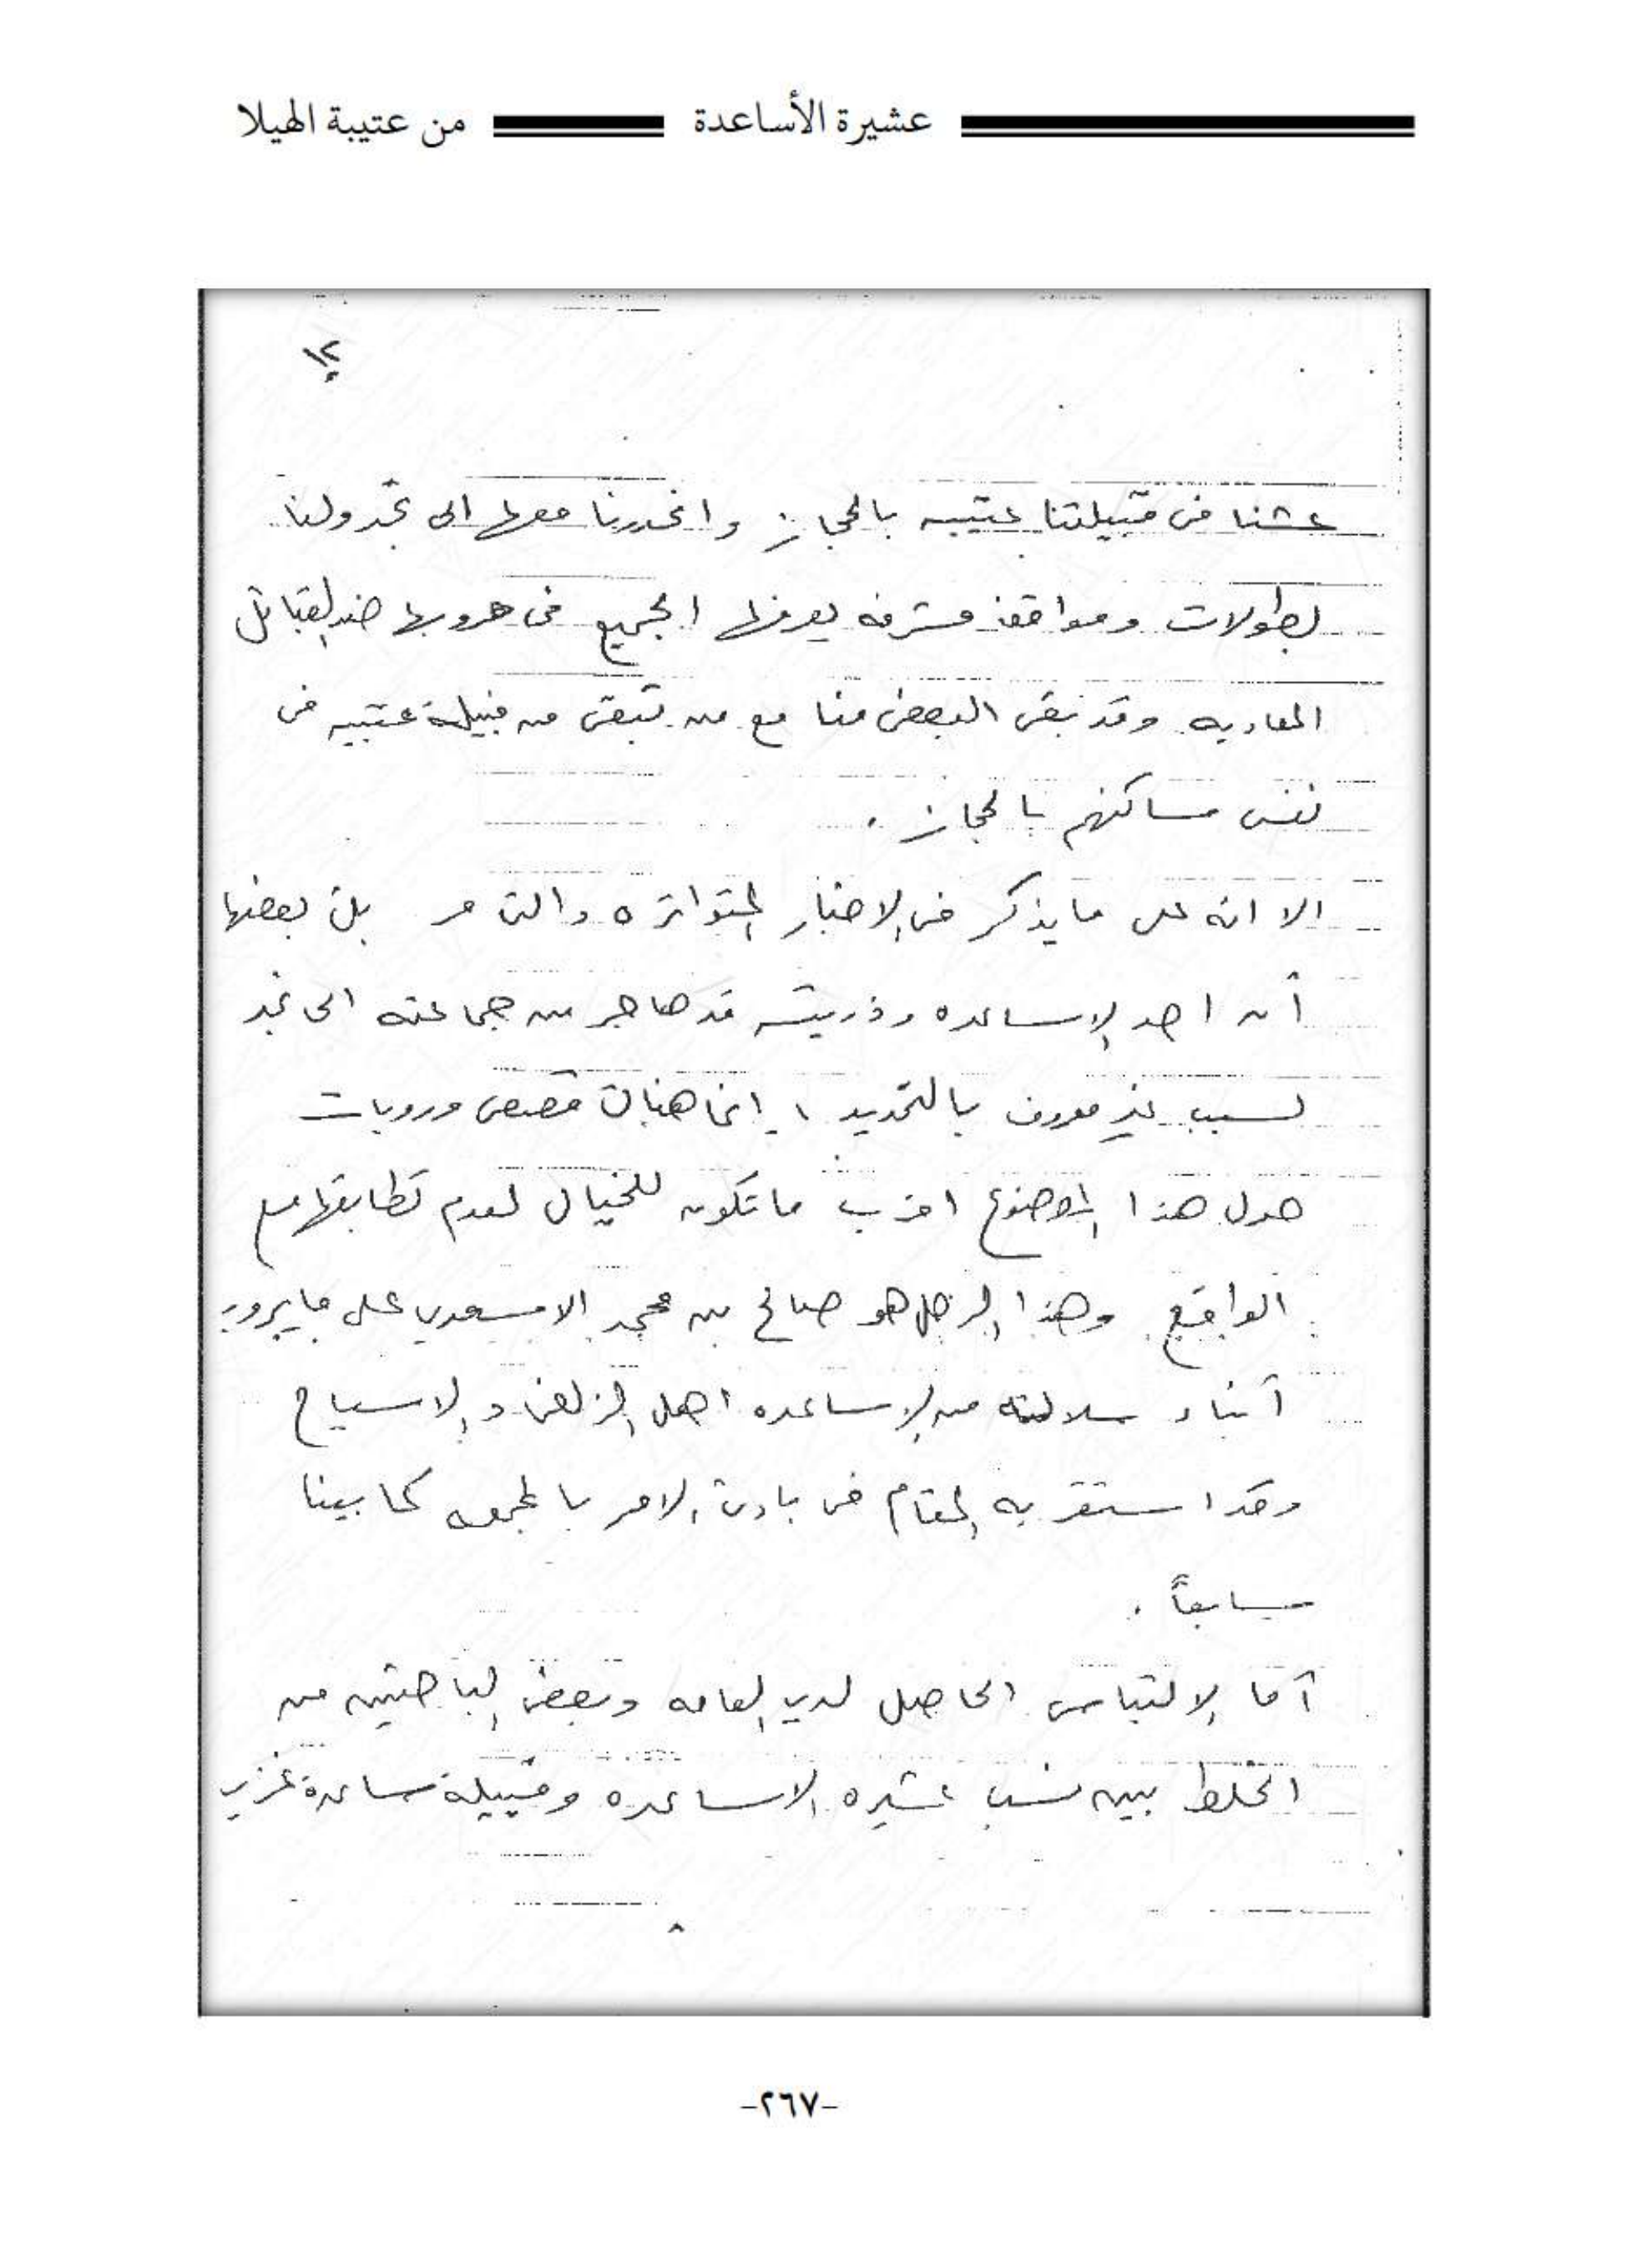 عشيرة الأساعدة من عتيبة الهيلا
١٢
عشنا فى قبيلتنا عتيبه بالحجاز وانحدرنا معها الى نجد ولنا
بطولات ومواقف مشرفه يعرفها الجميع فى حروبها ضد القبائل
المعاديه وقد بقى البعض منا مع من تبقى من قبيلة عتيبه فى
نفس مساكنهم بالحجاز .
الا انه على مايذكر فى الاخبار المتواتره والتى بعضها
أن احد الاساعده وذريته قد هاجر من جماعته الى نجد
لسبب غير معروف بالتحديد ، إنما هناك قصص وروايات
حول هذا الموضوع اقرب ماتكون للخيال لعدم تطابقها مع
الواقع وهذا الرجل هو صالح بن محمد الاسعدي على مايروى
سلالته من الاساعده اهل الزلفى والاسياح
وقد استقر به المقام فى بادئ الامر بالمجمعه كما بينا
سابقاً .
أما الالتباس الحاصل لدى العامه وبعض الباحثين من
الخلط بين نسب عشيره الاساعده وقبيلة ساعدة
-٢٦٧-